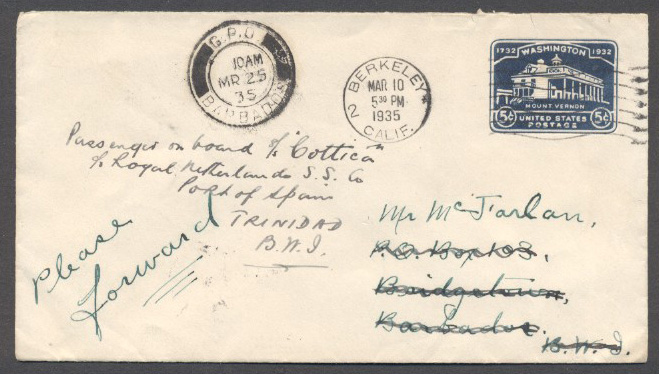 G.P.O
10AM
MR 25
35
BARBADOS
2 BERKELEY
MAR 10
5 30 PM
1935
CALIF.
1732 WASHINGTON 1932
MOUNT VERNON
5¢ UNITED STATES 5¢
POSTAGE
Passenger on board S/S "Cottica"
c/o Royal Netherlands S.S. Co
Port of Spain
TRINIDAD
B.W.I.
Please
forward
Mr McFarlan,
P.O. Box
Bridgetown,
Barbados.
B.W.I.